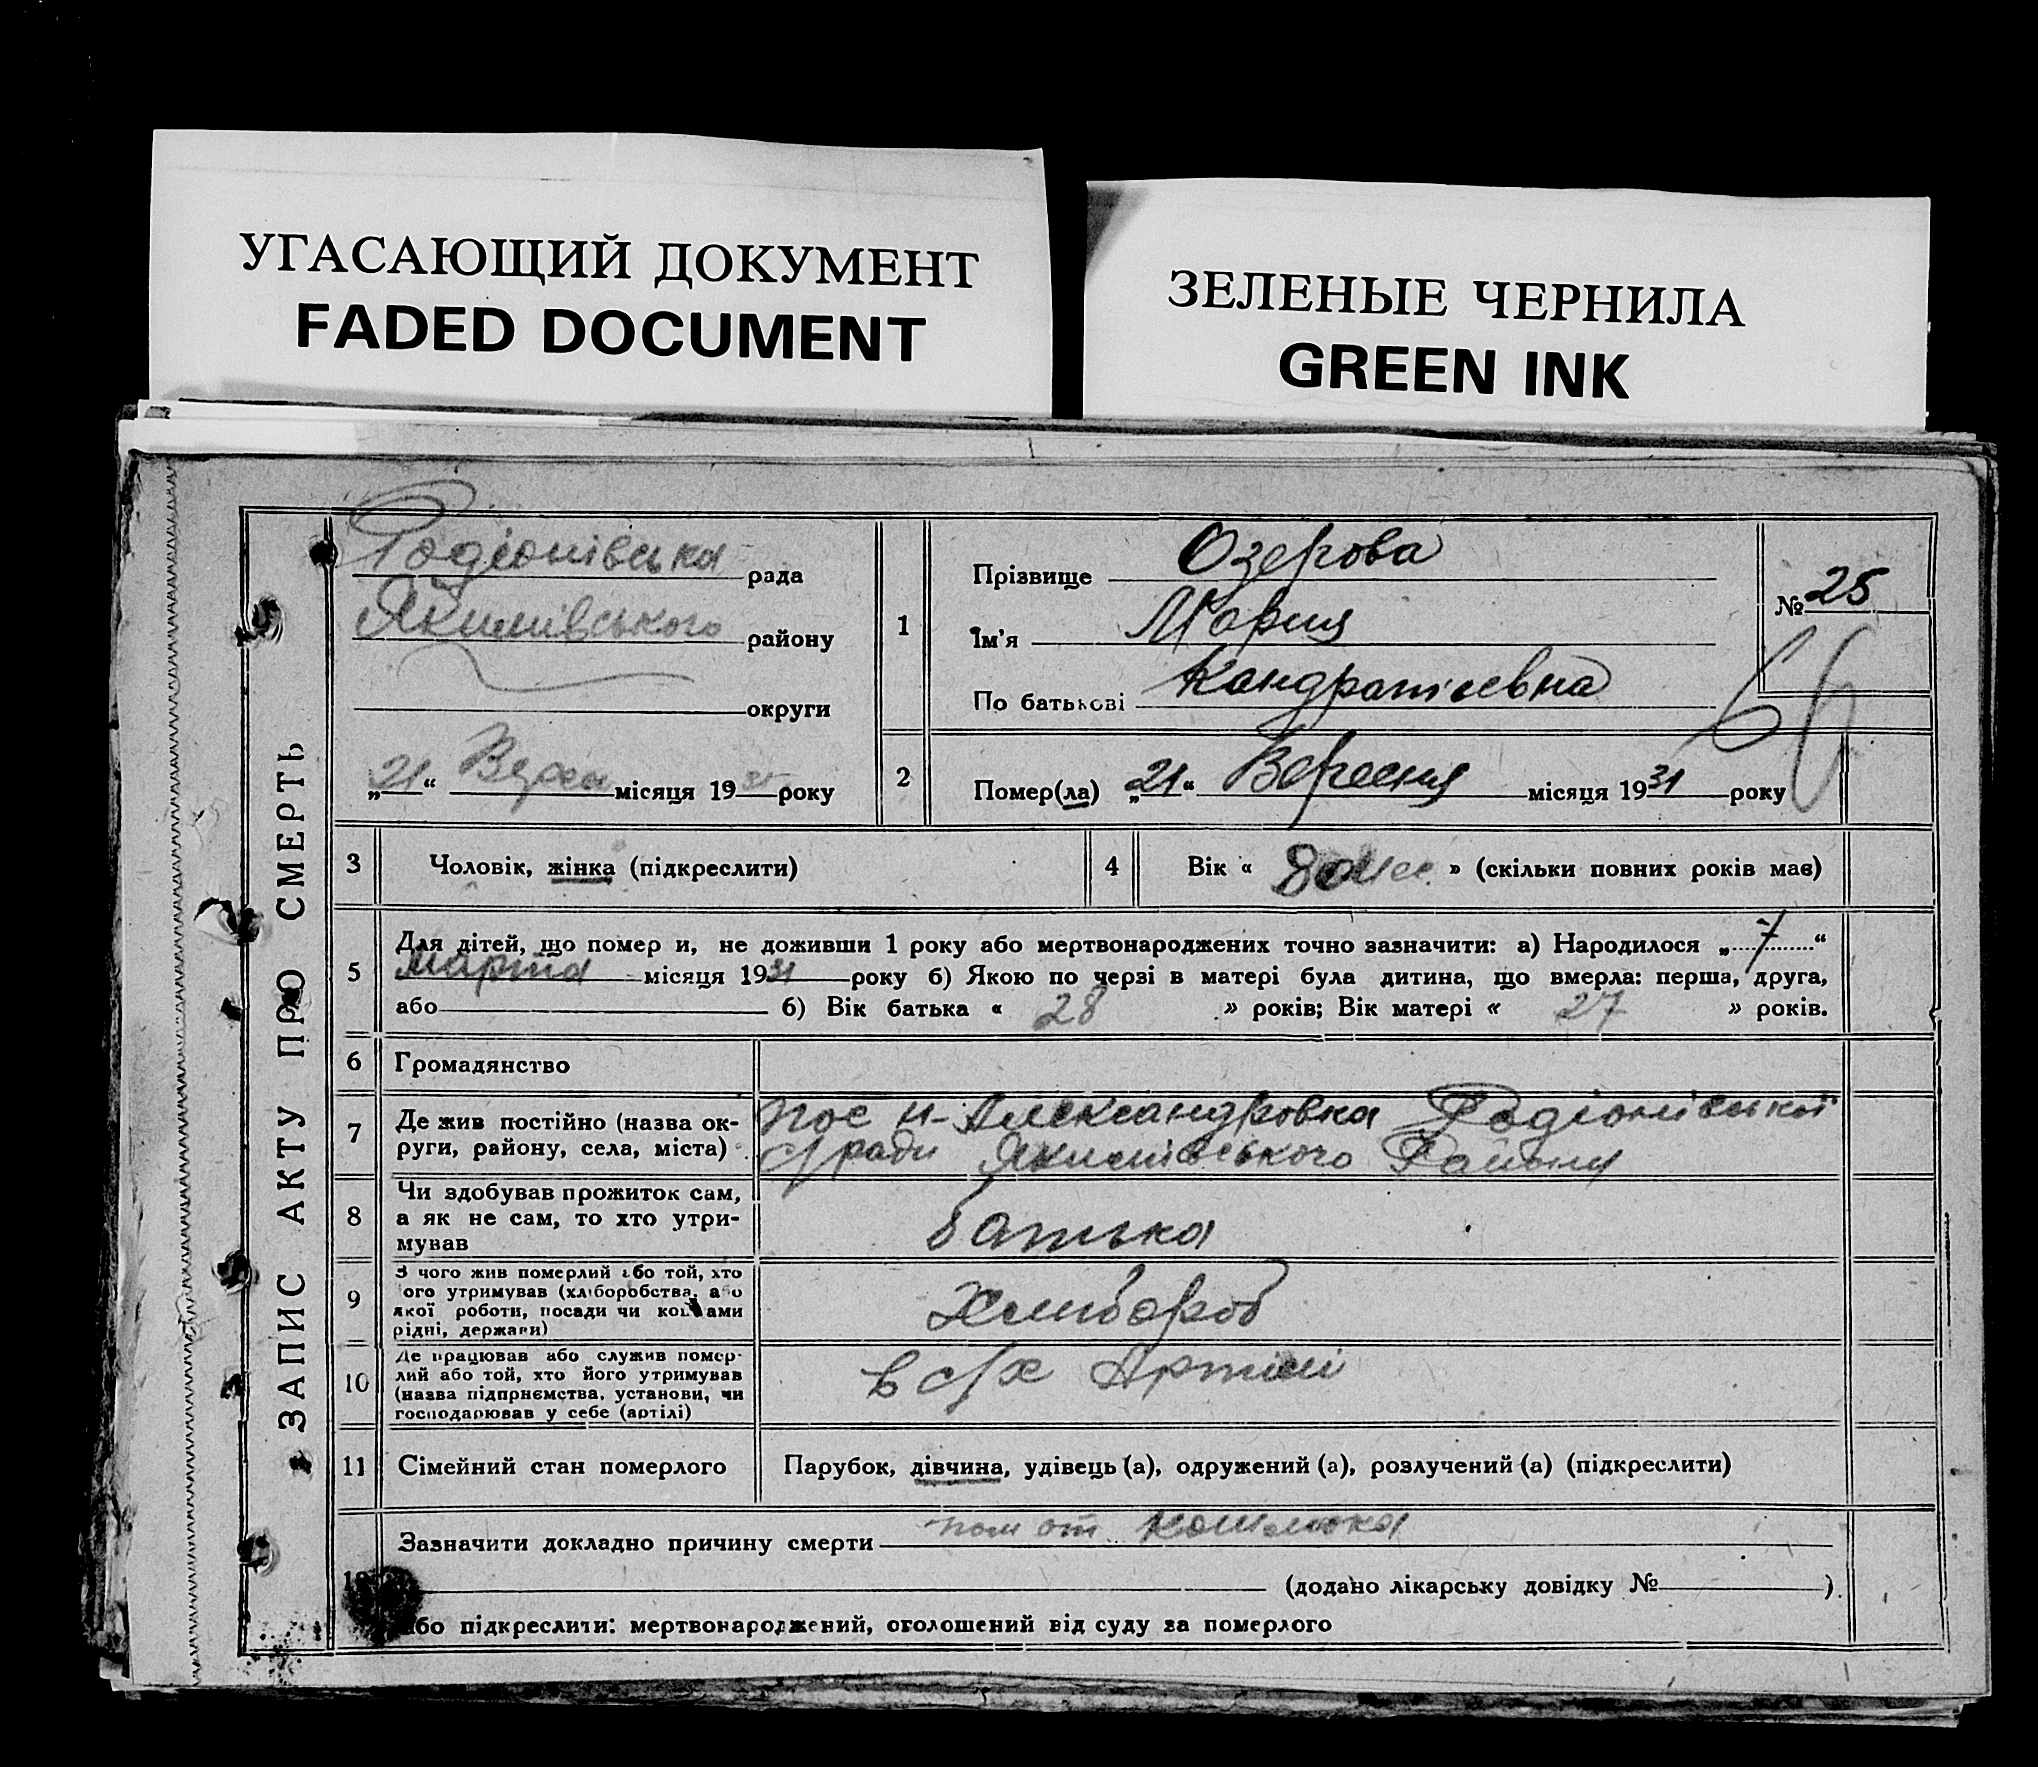 УГАСАЮЩИЙ ДОКУМЕНТ
FADED DOCUMENT
ЗЕЛЕНЫЕ ЧЕРНИЛА
GREEN INK
ЗАПИС АКТУ ПРО СМЕРТЬ
Родіонівська рада
Якимівського району
округи
„21“ місяця 19 року
1
Прізвище Озерова
Ім'я Мария
По батькові Кандратієвна
№ 25
2
Помер(ла) „21“ Вересня місяця 1931 року
3
Чоловік, жінка (підкреслити)
4
Вік « » (скільки повних років має)
5
Для дітей, що помер и, не доживши 1 року або мертвонароджених точно зазначити: а) Народилося „7“
Марта місяця 1931 року б) Якою по черзі в матері була дитина, що вмерла: перша, друга,
або б) Вік батька « 28 » років; Вік матері « 27 » років.
6
Громадянство
7
Де жив постійно (назва ок-
руги, району, села, міста)
пос Н-Александровка Родіонівської
с/ради Якимівського Району
8
Чи здобував прожиток сам,
а як не сам, то хто утри-
мував
батька
9
З чого жив померлий або той, хто
ого утримував (хліборобства, або
якої роботи, посади чи коштами
рідні, держави)
Хлибороб
10
Де працював або служив помер-
лий або той, хто його утримував
(назва підприємства, установи, чи
господарював у себе (артілі)
в с/х Артілі
11
Сімейний стан померлого
Парубок, дівчина, удівець (а), одружений (а), розлучений (а) (підкреслити)
Зазначити докладно причину смерти от кашлюка
(додано лікарську довідку № ).
або підкреслити: мертвонароджений, оголошений від суду за померлого